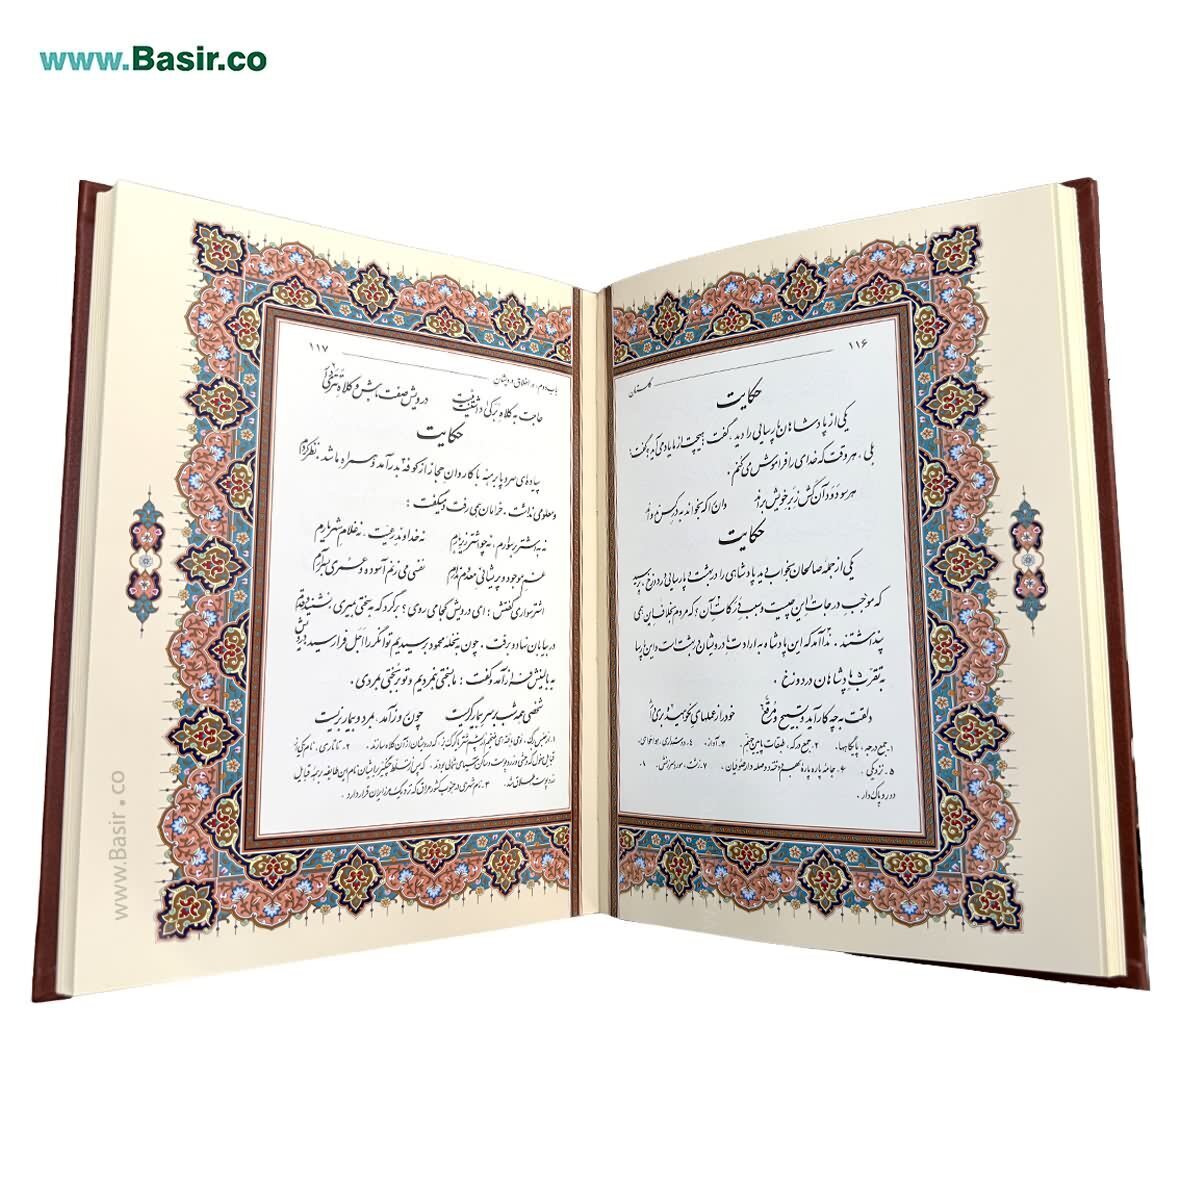 www.Basir.co
۱۱۶
گلستان
حکایت
یکی از پادشاهان پارسایی را دید، گفت: هیچت از ما یاد می‌آید؟ گفت:
بلی، هر وقت که خدای را فراموش می‌کنم.
هر سو دود آن کش ز بر خویش براند   وان را که بخواند به در کس ندواند
حکایت
یکی از جمله صالحان بخواب دید پادشاهی را در بهشت و پارسایی در دوزخ، پرسید
که موجب درجات این چیست و سبب درکات آن؟ که مردم بخلاف این همی
پنداشتند. ندا آمد که این پادشاه به ارادت درویشان در بهشت است و این پارسا
به تقرب پادشاهان در دوزخ.
دلقت به چه کار آید و تسبیح و مرقع   خود را ز عملهای نکوهیده بری دار
۱. جمع درجه، پایگاهها. ۲. جمع درکه، طبقات پایین جهنم. ۳. آواز. ۴. دوستداری، هواخواهی.
۵. نزدیکی. ۶. جامه پاره پاره بهم دوخته و وصله دار صوفیان. ۷. زشت، مورد سرزنش. ۸.
دور و پاک دار.
۱۱۷
باب دوم، در اخلاق درویشان
حاجت به کلاه برکی داشتنت نیست   درویش صفت باش و کلاه تتری دار
حکایت
پیاده‌ای سر و پا برهنه با کاروان حجاز از کوفه بدر آمد و همراه ما شد. نظر کردم
و معلومی نداشت. خرامان همی رفت و می‌گفت:
نه به اشتر بر سوارم، نه چو اشتر زیر بارم   نه خداوند رعیت، نه غلام شهریارم
غم موجود و پریشانی معدوم ندارم   نفسی می‌زنم آسوده و عمری بسر آرم
اشتر سواری گفتش: ای درویش کجا می‌روی؟ برگرد که به سختی بمیری. نشنید و قدم
در بیابان نهاد و برفت. چون به نخله محمود رسیدیم توانگر را اجل فرا رسید. درویش
به بالینش فراز آمد و گفت: ما به سختی نمردیم و تو بر بختی بمردی.
شخصی همه شب بر سر بیمار گریست   چون روز آمد، بمرد و بیمار بزیست
www.Basir.co